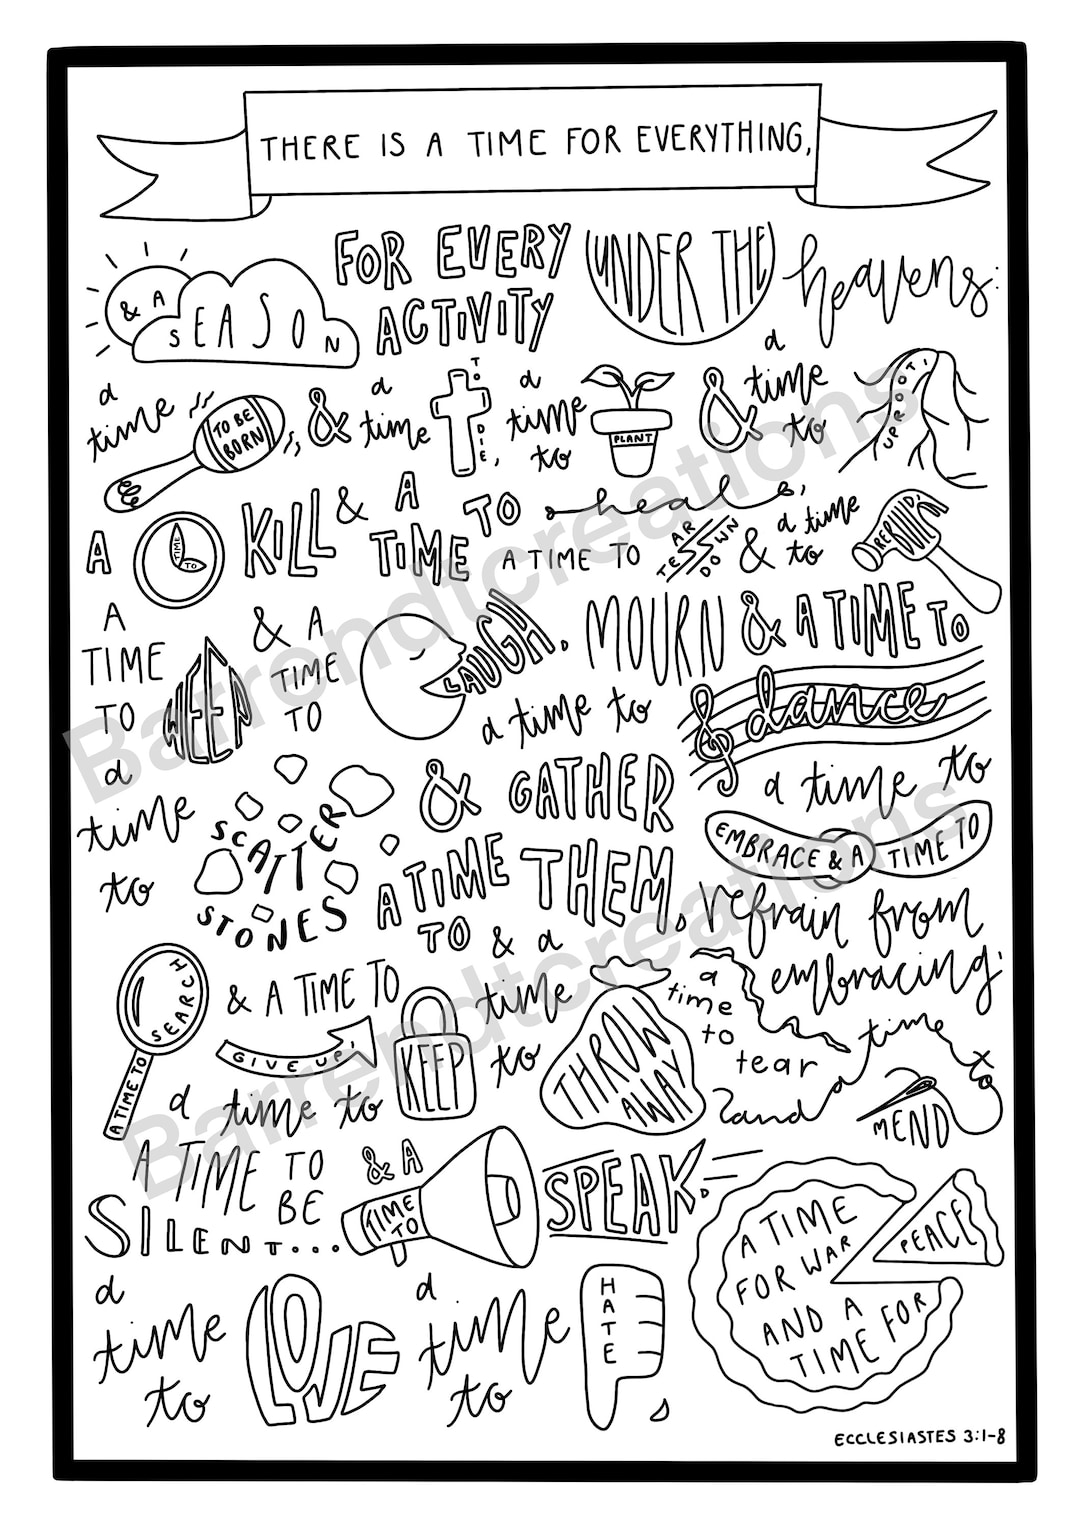 THERE IS A TIME FOR EVERYTHING,
& A SEASON
FOR EVERY ACTIVITY
UNDER THE heavens:
a time TO BE BORN
& a time TO DIE,
a time to PLANT
& a time to UPROOT,
A TIME TO KILL & A TIME TO heal,
A TIME TO TEAR DOWN & a time to REBUILD,
A TIME TO WEEP
& A TIME TO LAUGH,
a time to MOURN & A TIME TO dance
a time to SCATTER STONES
& A TIME TO GATHER THEM,
a time to EMBRACE & A TIME TO
refrain from embracing;
A TIME TO SEARCH
& A TIME TO GIVE UP,
a time to KEEP
& a time to THROW AWAY
a time to tear
and a time to MEND
A TIME TO BE SILENT...
& A TIME TO SPEAK.
a time to LOVE
a time to HATE,
A TIME FOR WAR AND A TIME FOR PEACE
ECCLESIASTES 3:1-8
Barrendtcreations
Barrendtcreations